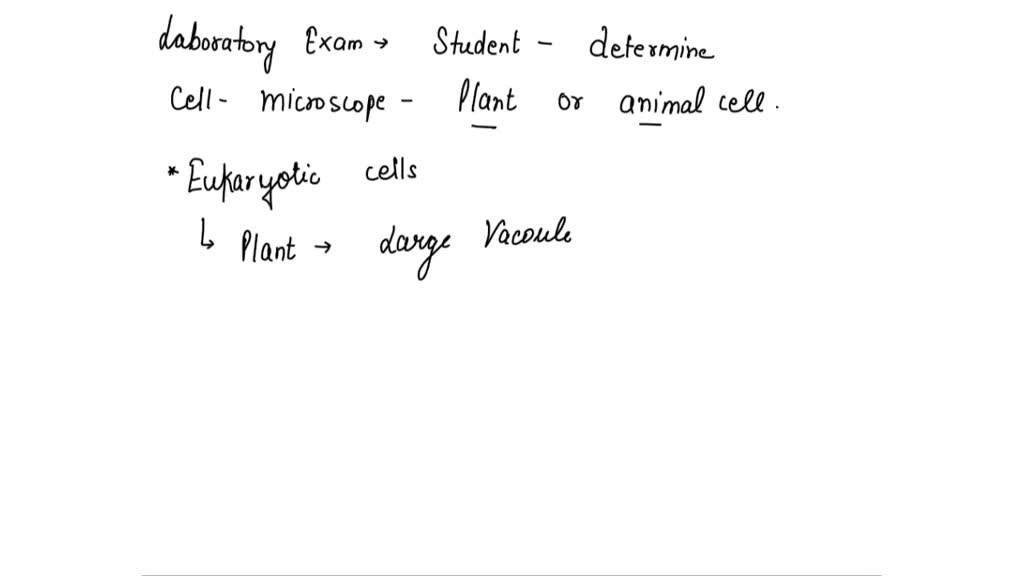 Laboratory Exam → Student - determine
Cell - microscope - Plant or animal cell.
* Eukaryotic cells
↳ Plant → Large Vacoule